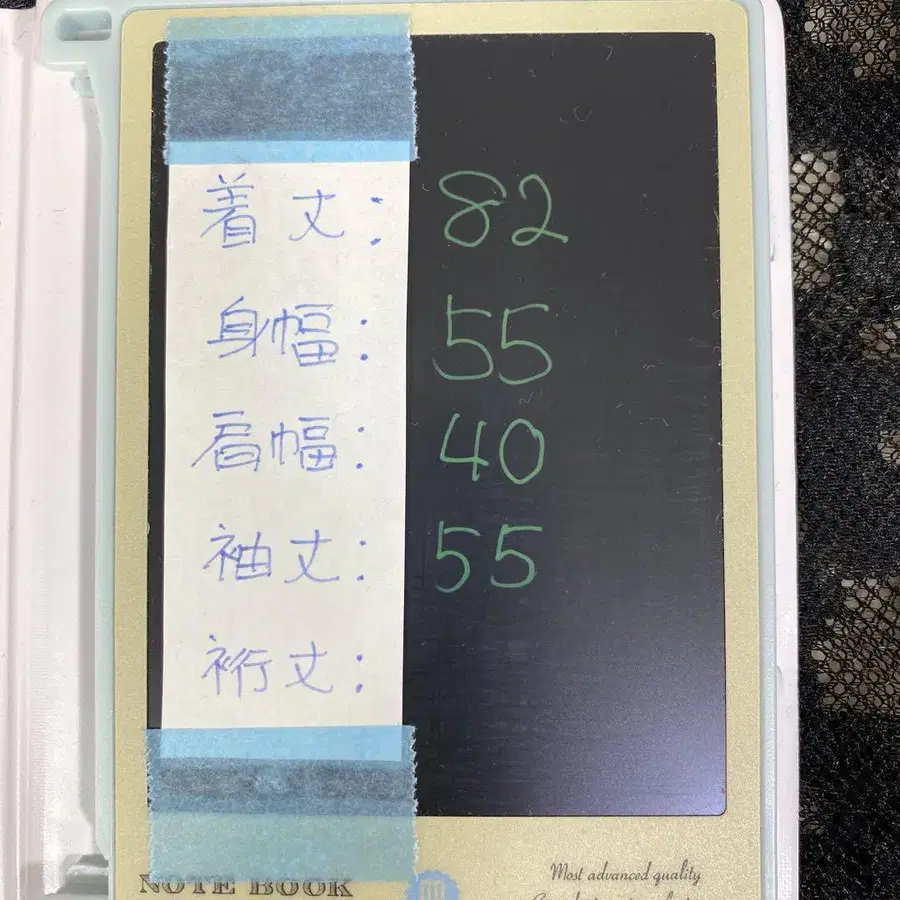 着丈: 82
身幅: 55
肩幅: 40
袖丈: 55
裄丈:
NOTE BOOK
Most advanced quality